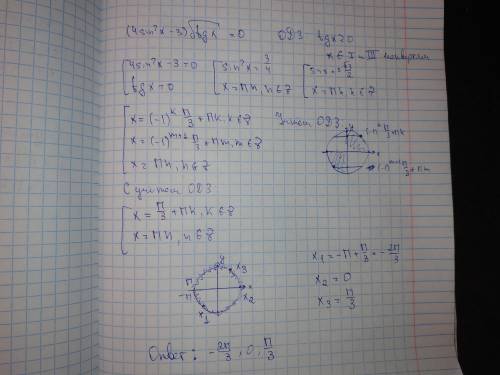 (4sin²x-3)√tgx = 0 ОДЗ tgx≥0
x ∈ I и III четверти
[4sin²x-3=0 [sin²x=3/4 [sinx=±√3/2
tgx=0 x=πn, n∈Z x=πn, n∈Z
[x=(-1)^k π/3+πk, k∈Z
x=(-1)^(m+1) π/3+πm, m∈Z
x=πn, n∈Z
Учтём ОДЗ
y
x
(-1)^k π/3+πk
(-1)^(m+1) π/3+πm
С учётом ОДЗ
[x=π/3+πk, k∈Z
x=πn, n∈Z
y
x₃
π
-π
x
x₂
x₁
x₁=-π+π/3=-2π/3
x₂=0
x₃=π/3
Ответ: -2π/3; 0; π/3